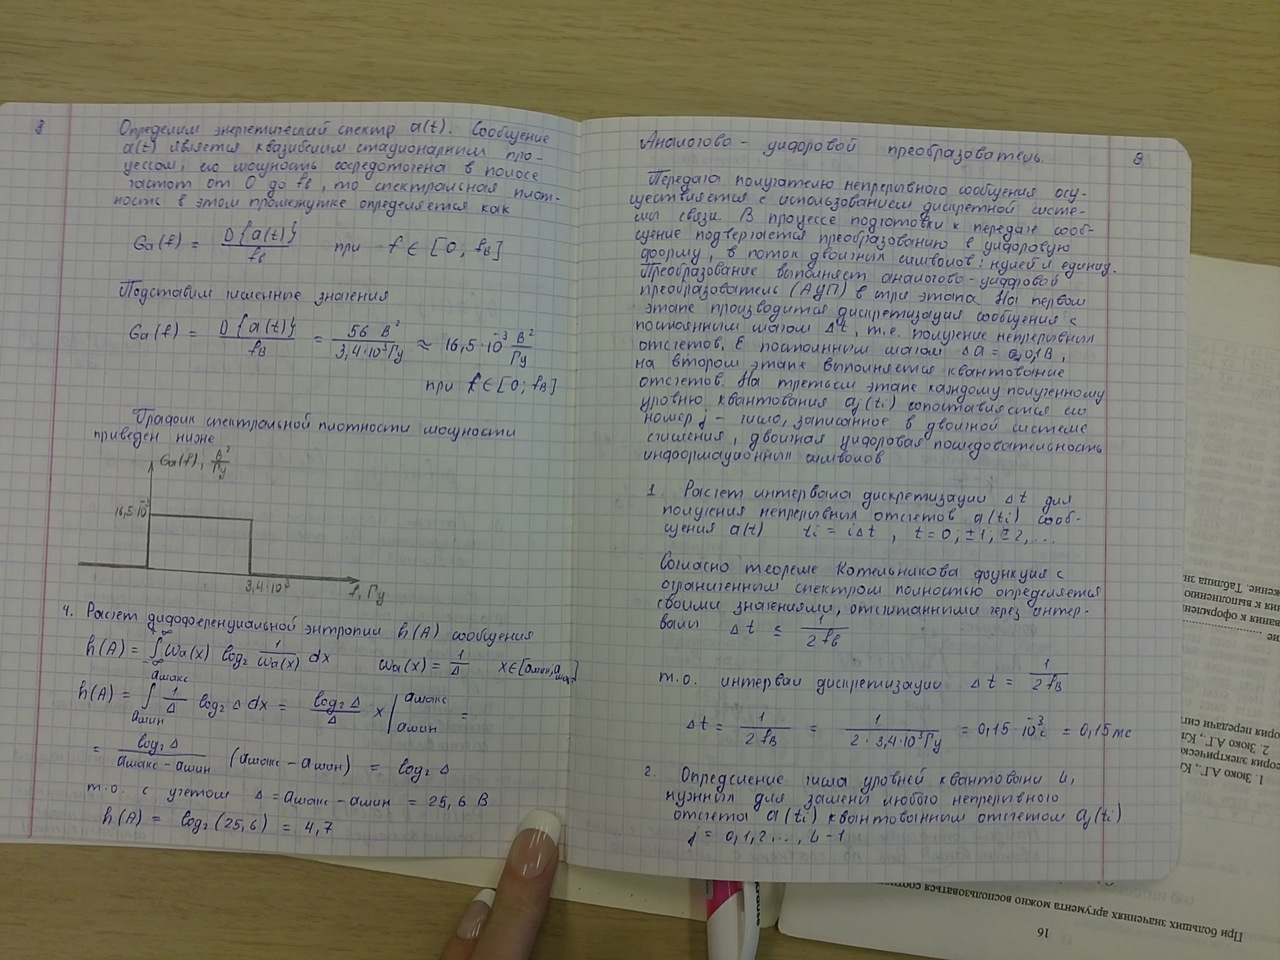 3
Определим энергетический спектр a(t). Сообщение
a(t) является квазибелым стационарным про-
цессом, его мощность сосредоточена в полосе
частот от 0 до fв, то спектральная плот-
ность в этом промежутке определяется как
Ga(f) = D{a(t)} / fв при f ∈ [0; fв]
Подставим численные значения
Ga(f) = D{a(t)} / fв = 56 В² / 3,4·10³ Гц ≈ 16,5·10⁻³ В²/Гц
при f ∈ [0; fв]
График спектральной плотности мощности
приведен ниже
Ga(f), В²/Гц
16,5·10⁻³
3,4·10³ f, Гц
4. Расчет дифференциальной энтропии h(A) сообщения
h(A) = ∫_{-∞}^{∞} Wa(x) log₂ 1/Wa(x) dx Wa(x) = 1/Δ x∈[aмин; aмак]
h(A) = ∫_{aмин}^{aмакс} 1/Δ log₂ Δ dx = log₂ Δ / Δ x |_{aмин}^{aмакс} =
= log₂ Δ / (aмакс - aмин) (aмакс - aмин) = log₂ Δ
т.о. с учетом Δ = aмакс - aмин = 25,6 В
h(A) = log₂(25,6) = 4,7
Аналогово - цифровой преобразователь.
Передача получателю непрерывного сообщения осу-
ществляется с использованием дискретной систе-
мы связи. В процессе подготовки к передаче сооб-
щение подвергается преобразованию в цифровую
форму, в поток двоичных символов: нулей и единиц.
Преобразование выполняет аналогово-цифровой
преобразователь (АЦП) в три этапа. На первом
этапе производится дискретизация сообщения с
постоянным шагом Δt, т.е. получение непрерывных
отсчетов. С постоянным шагом Δa = 0,1В,
на втором этапе выполняется квантование
отсчетов. На третьем этапе каждому полученному
уровню квантования aj(ti) сопоставляется его
номер j - число, записанное в двоичной системе
счисления, двоичная цифровая последовательность
информационных символов
1. Расчет интервала дискретизации Δt для
получения непрерывных отсчетов a(ti) сооб-
щения a(t) ti = iΔt, t = 0; ±1; ±2, ...
Согласно теореме Котельникова функция с
ограниченным спектром полностью определяется
своими значениями, отсчитанными через интер-
валы Δt ≤ 1 / 2fв
т.о. интервал дискретизации Δt = 1 / 2fв
Δt = 1 / 2fв = 1 / 2·3,4·10³Гц = 0,15·10⁻³с = 0,15мс
2. Определение числа уровней квантовани L,
нужных для замены любого непрерывного
отсчета a(ti) квантованным отсчетом aj(ti)
j = 0,1,2..., L-1
При больших значениях аргумента можно воспользоваться
16
1. Зюко А.Г., Кл
2. Зюко А.Г., Кл